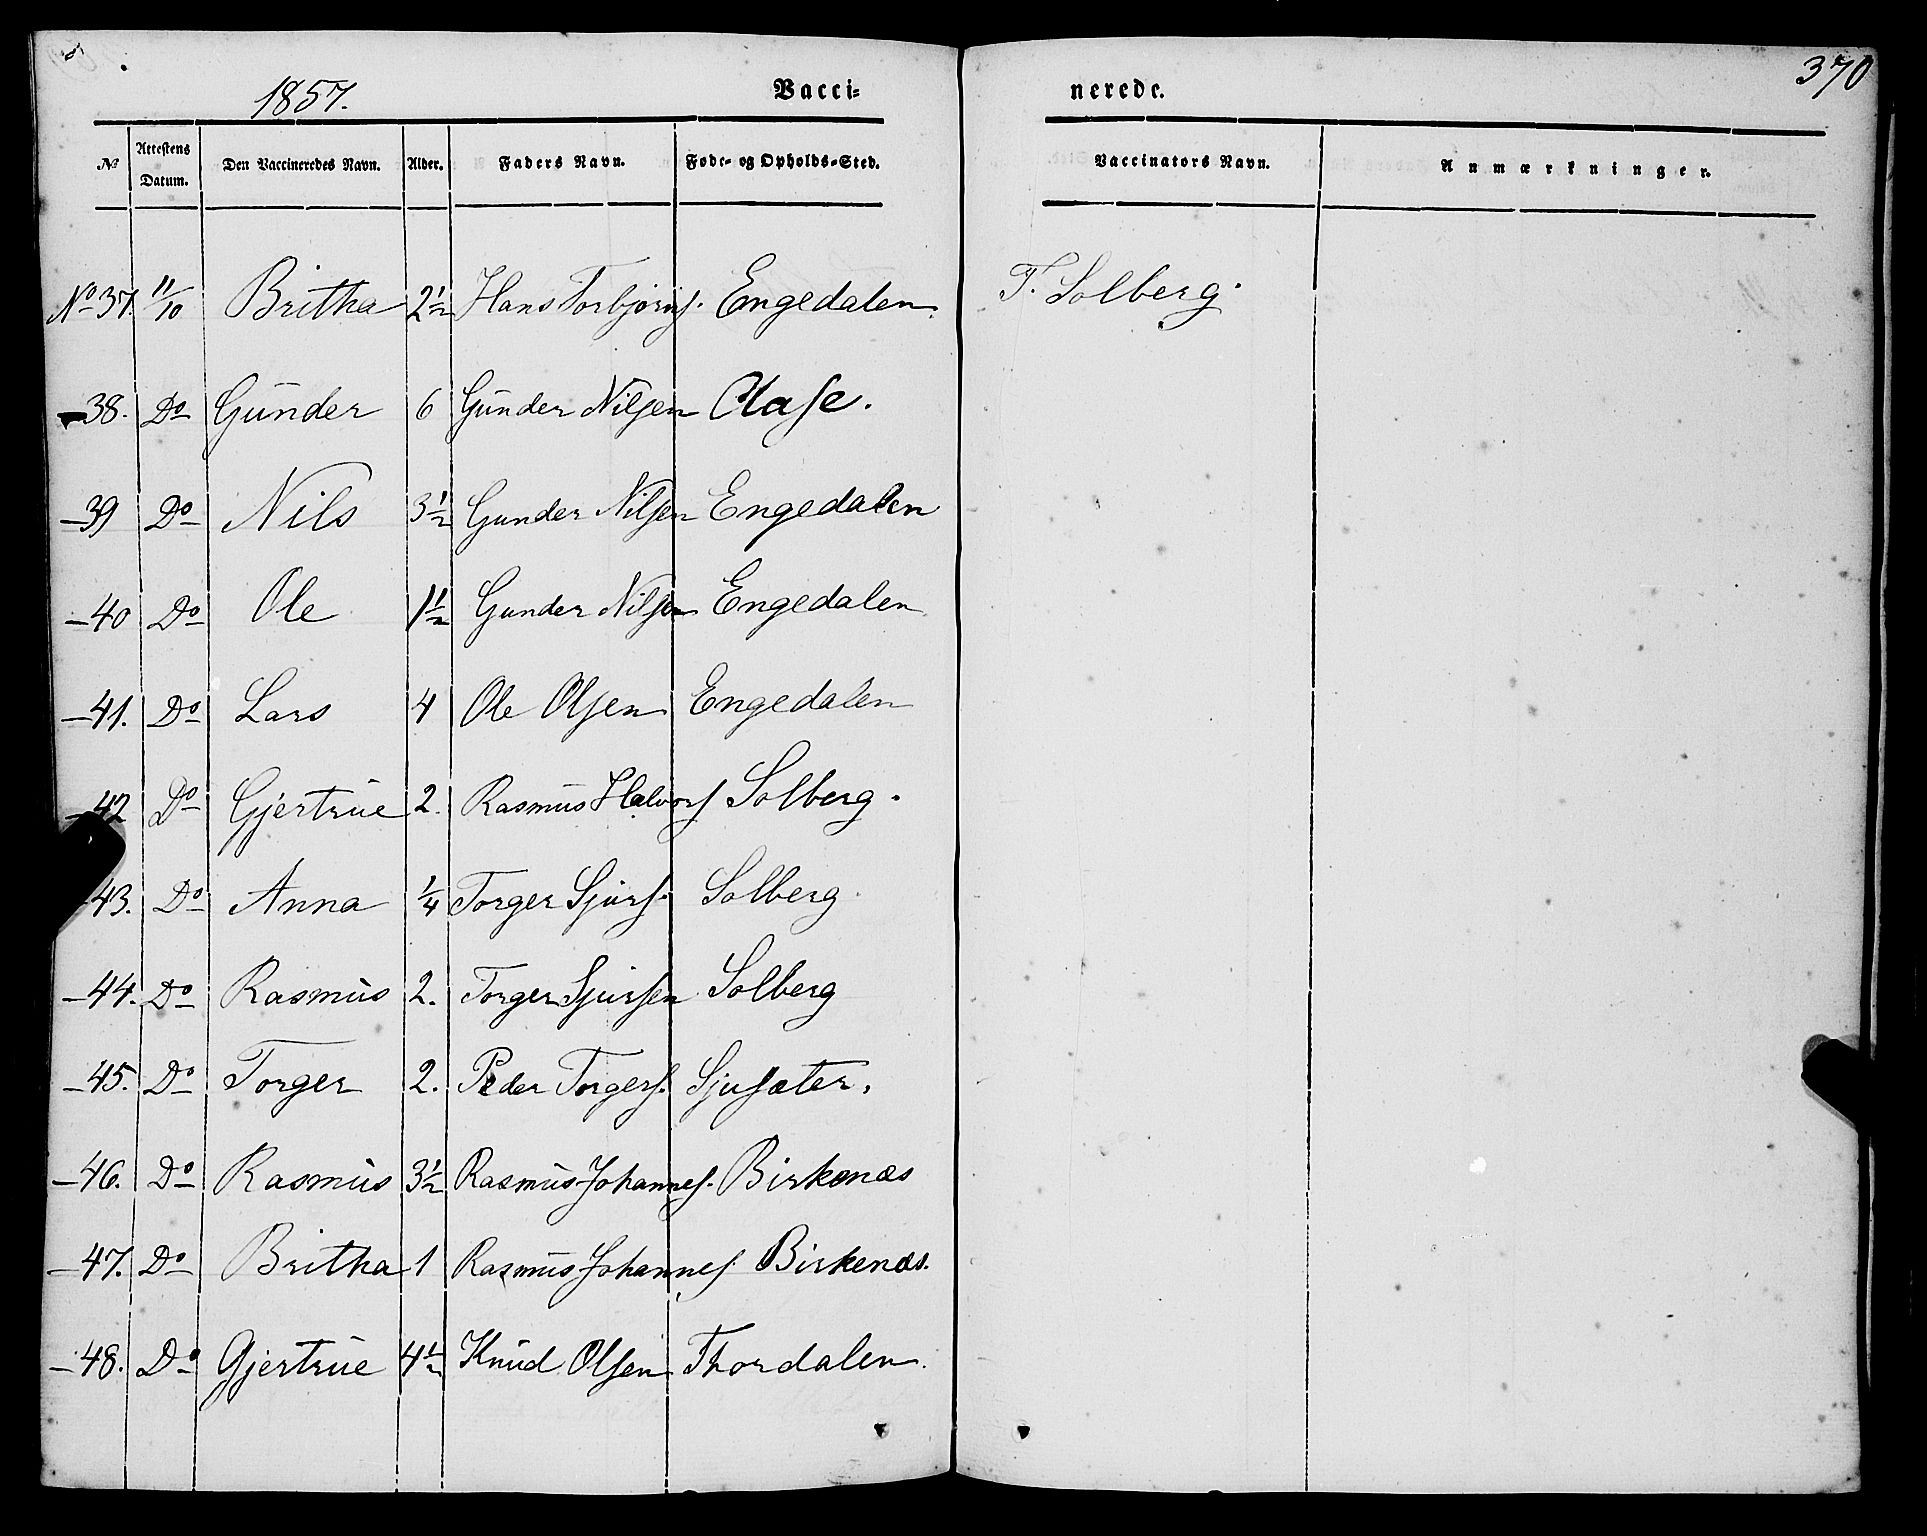 370
1857. Vacci- nerede.
No Attestens Datum. Den Vaccineredes Navn. Alder. Faders Navn. Føde- og Opholds-Sted. Vaccinators Navn. Anmærkninger.
No 37. 11/10 Britha 2½ Hans Torbjørns. Engedalen. T. Solberg.
-38. Do Gunder 6 Gunder Nilsen Aase.
-39 Do Nils 3½ Gunder Nilsen Engedalen
-40 Do Ole 1½ Gunder Nilsen Engedalen
-41. Do Lars 4 Ole Olsen Engedalen
-42 Do Gjertrue 2. Rasmus Halvors Solberg.
-43. Do Anna ¼ Torger Sjurs. Solberg.
-44. Do Rasmus 2. Torger Sjursen Solberg
-45. Do Torger 2. Peder Torgers. Sjusæter.
-46. Do Rasmus 3½ Rasmus Johannes. Birkenæs
-47. Do Britha 1 Rasmus Johannes. Birkenæs.
-48. Do Gjertrue 4½ Knud Olsen Thordalen.